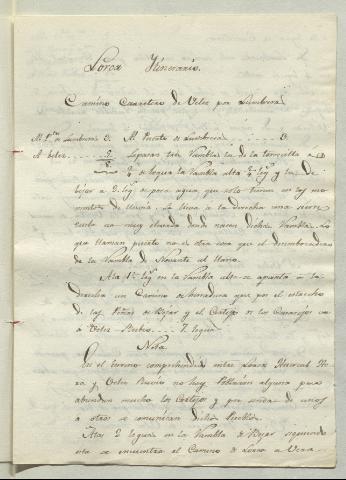 Lorca Itinerario.
Camino Carretero de Velez por Lumbreras
Al Pto de Lumbreras 3. Al Puerto de Lumbreras 3.
A Velez 5. Separan tres Rambla la de la torrecilla á
8. de legua la Rambla alta legs y la de
Bejar a 3. leg de poca agua, que solo tienen en los mo-
mentos de lluvia. Se lleva a la derecha una sierre-
cuela no muy elevada donde nacen dichas Rambla. Lo
que llaman puerto no es otra cosa que el desembocadero
de la Rambla de Nogalte al llano.
A la 1ª leg en la Rambla alta se aparta á la
derecha un Camino de herradura que por el estrecho
de las Peñas de Bejar y el Cortijo de los Cararejos va
á Velez-Rubio 7. leguas
Nota
En el terreno comprehendido entre Lorca Huercal Ove-
ra y Velez Rubio no hay Poblacion alguna pero
abundan mucho los Cortijos y por senda de unos
á otros se comunican dichos Pueblos.
A las 2 leguas en la Rambla de Bejar siguiendo
esta se encuentra el Camino de Lorca a Vera.